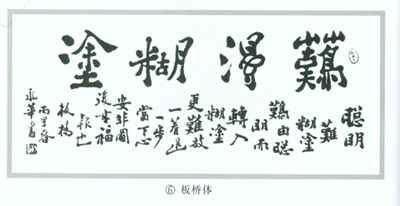 難得糊塗
聰明
難
糊塗
難由聰
明而
轉入
糊塗
更難放
一着退
一步
當下心
安非圖
後来福
報也
板橋
⑥ 板桥体